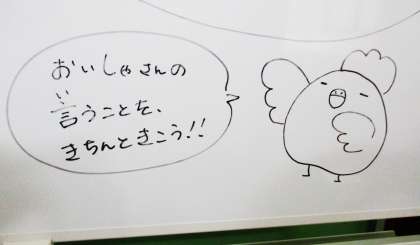 おいしゃさんの
言うことを、
きちんときこう!!